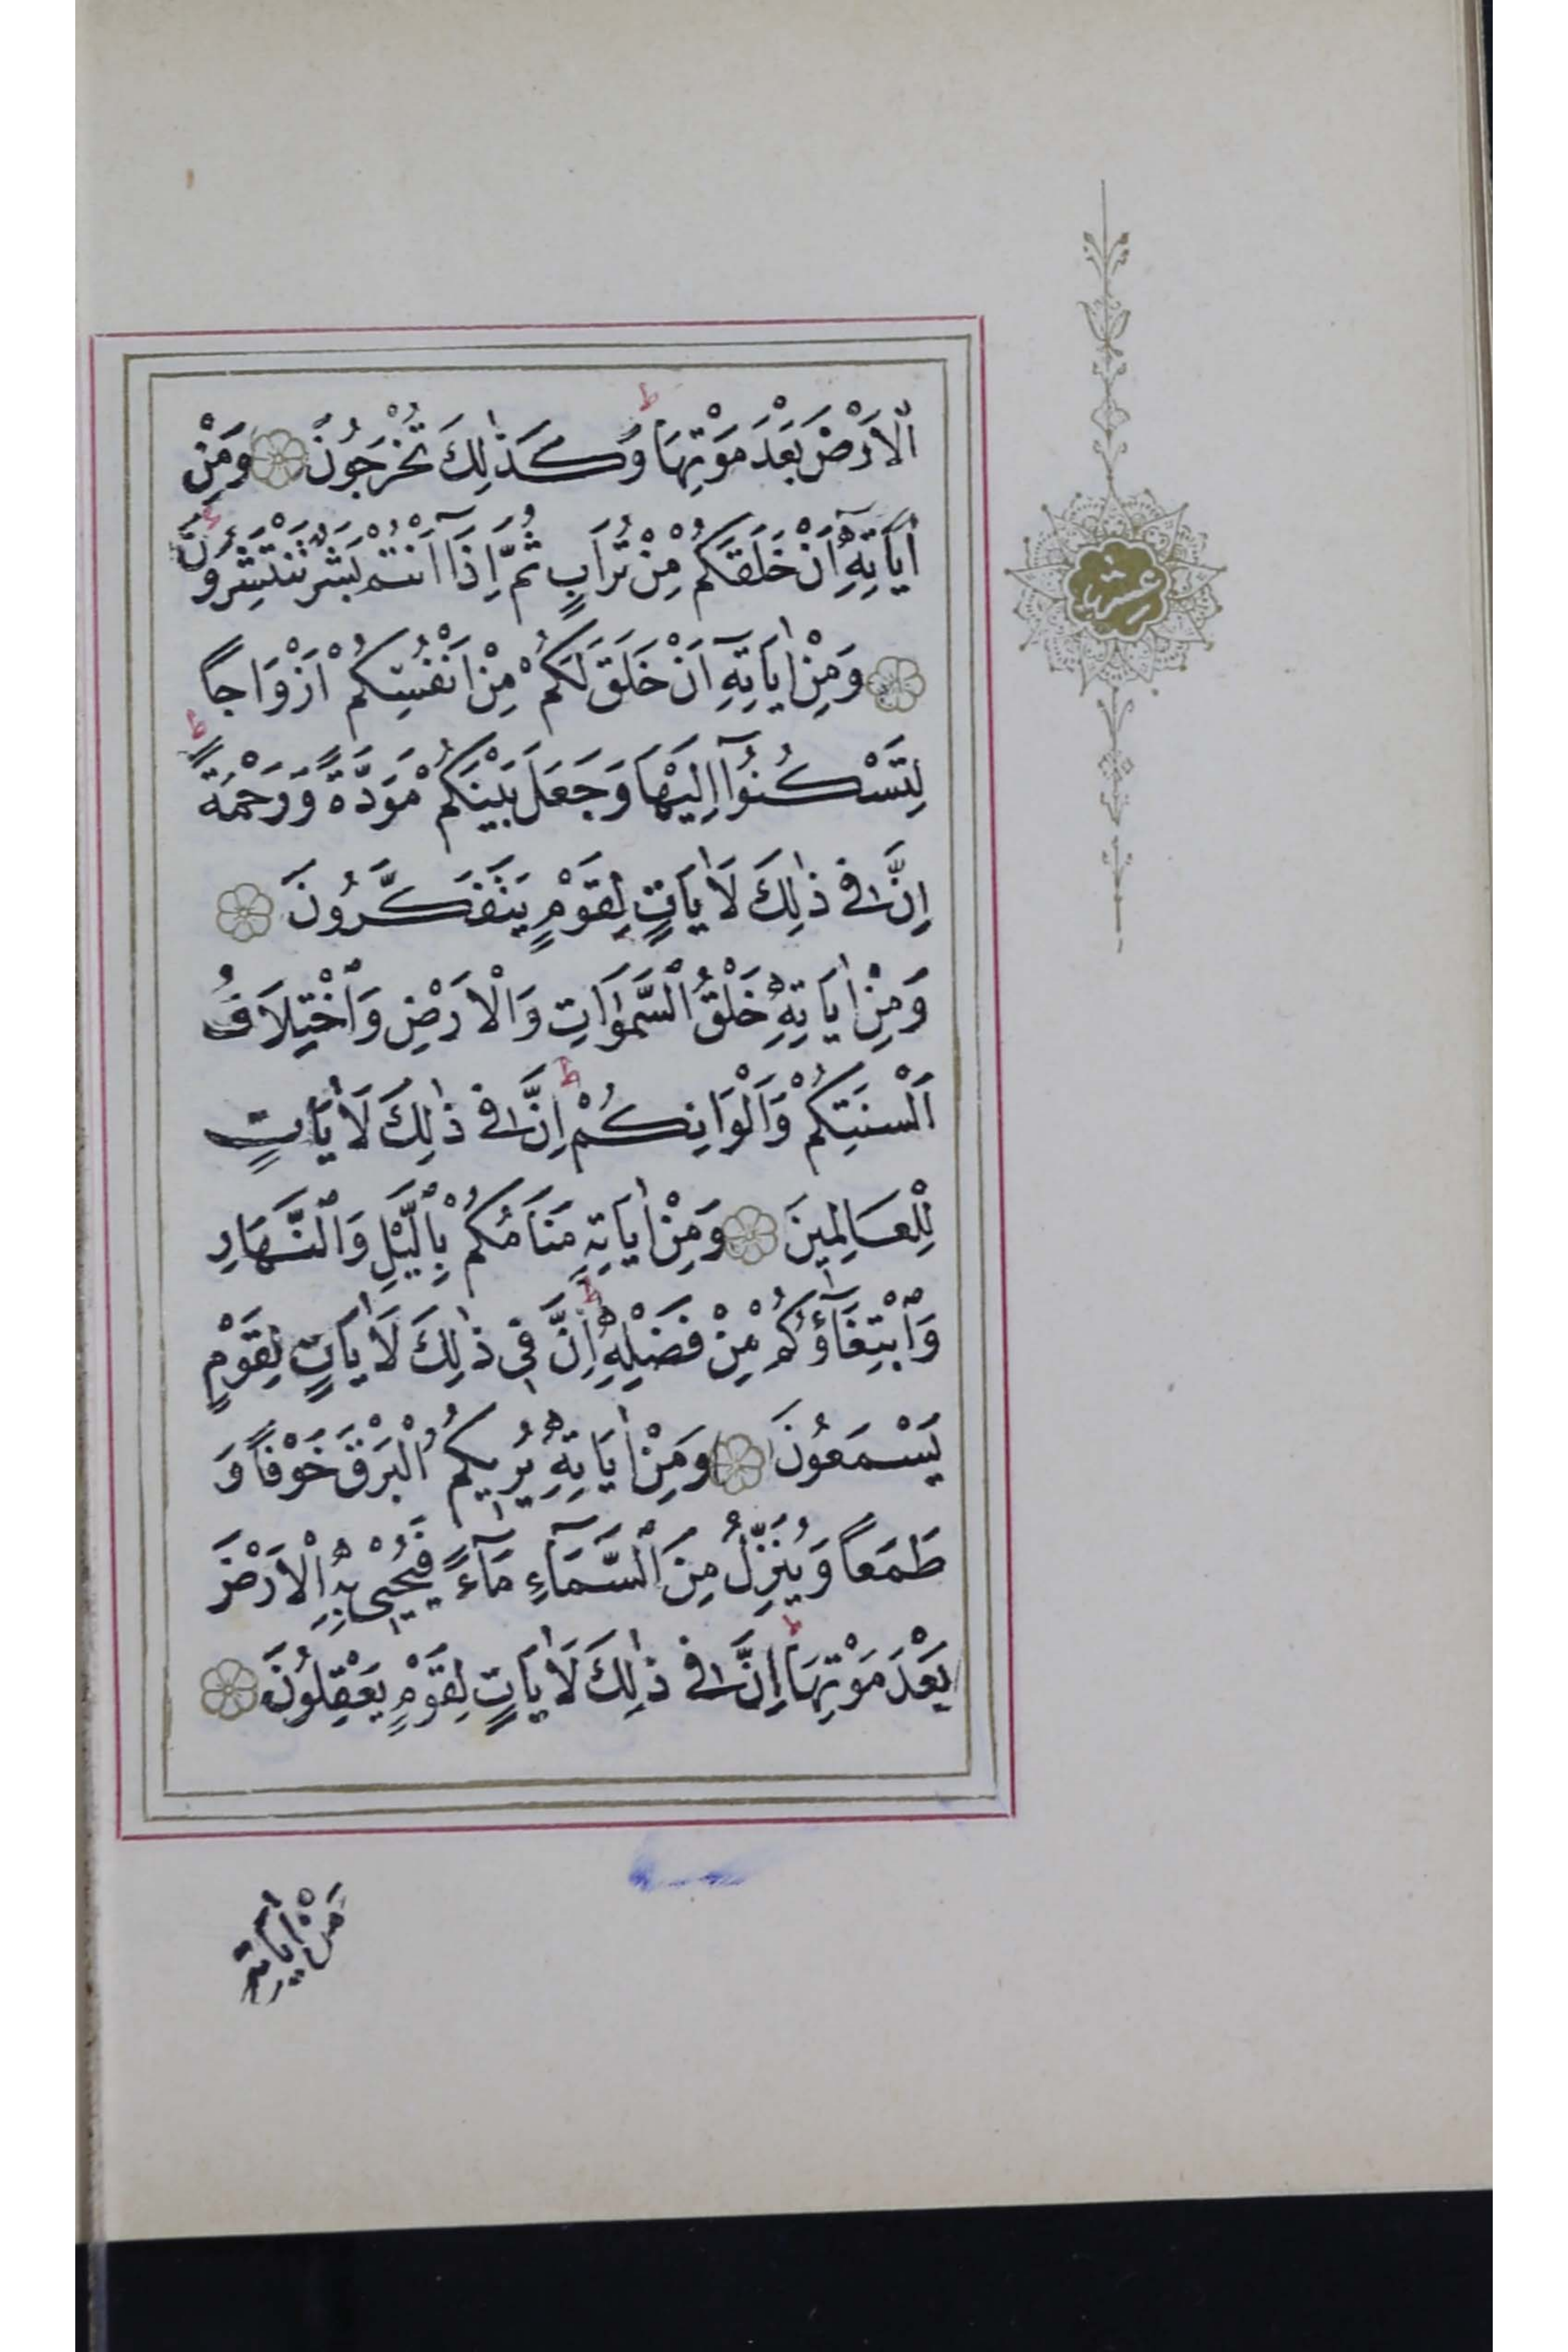 اَلْاَرْضَ بَعْدَ مَوْتِهَا ط وَكَذٰلِكَ تُخْرَجُونَ وَمِنْ
اٰيَاتِهٖٓ اَنْ خَلَقَكُمْ مِنْ تُرَابٍ ثُمَّ اِذَٓا اَنْتُمْ بَشَرٌ تَنْتَشِرُونَ
وَمِنْ اٰيَاتِهٖٓ اَنْ خَلَقَ لَكُمْ مِنْ اَنْفُسِكُمْ اَزْوَاجًا
لِتَسْكُنُوٓا اِلَيْهَا وَجَعَلَ بَيْنَكُمْ مَوَدَّةً وَرَحْمَةً ط
اِنَّ فٖى ذٰلِكَ لَاٰيَاتٍ لِقَوْمٍ يَتَفَكَّرُونَ
وَمِنْ اٰيَاتِهٖ خَلْقُ السَّمٰوَاتِ وَالْاَرْضِ وَاخْتِلَافُ
اَلْسِنَتِكُمْ وَاَلْوَانِكُمْ ط اِنَّ فٖى ذٰلِكَ لَاٰيَاتٍ
لِلْعَالِمِينَ وَمِنْ اٰيَاتِهٖ مَنَامُكُمْ بِالَّيْلِ وَالنَّهَارِ
وَابْتِغَٓاؤُ۬كُمْ مِنْ فَضْلِهٖ ط اِنَّ فٖى ذٰلِكَ لَاٰيَاتٍ لِقَوْمٍ
يَسْمَعُونَ وَمِنْ اٰيَاتِهٖ يُرٖيكُمُ الْبَرْقَ خَوْفًا وَ
طَمَعًا وَيُنَزِّلُ مِنَ السَّمَٓاءِ مَٓاءً فَيُحْيٖى بِهِ الْاَرْضَ
بَعْدَ مَوْتِهَا ط اِنَّ فٖى ذٰلِكَ لَاٰيَاتٍ لِقَوْمٍ يَعْقِلُونَ
عشر
مِنْ اٰيَاتِهٖ